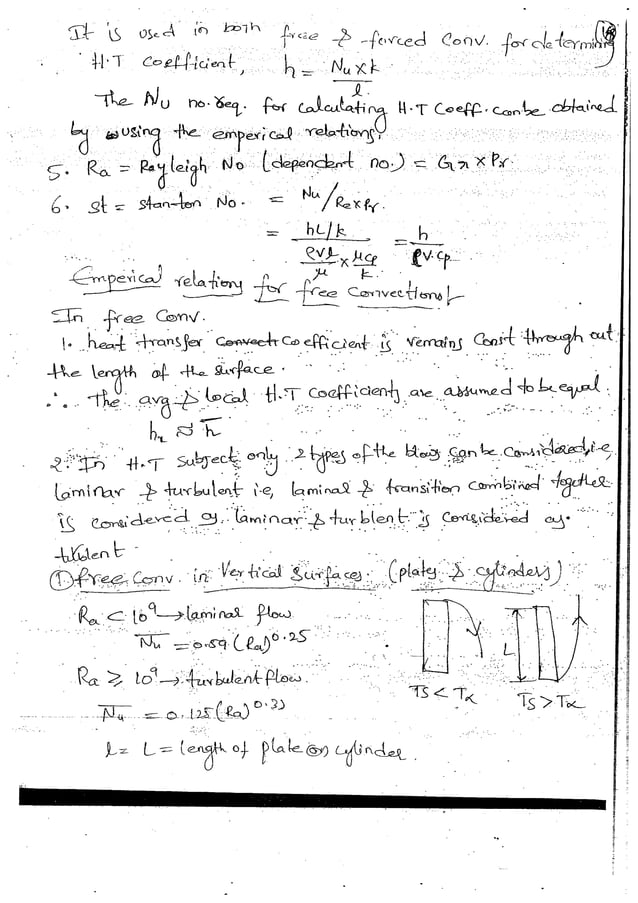 It is used in both free & forced Conv. for determining
H.T Coefficient, h = Nu×k / l
The Nu no. req. for calculating H.T Coeff. can be obtained
by using the emperical relations.
5. Ra = Rayleigh No (dependent no.) = Gr × Pr.
6. St = Stan-ton No. = Nu / Re×Pr.
= hL/k / (ρVl/μ × μCp/k) = h / ρV.Cp
Emperical relations for free Convections:-
In free Conv.
1. heat transfer Convect Coefficient is remains Const through out
the length of the surface.
∴ The avg & local H.T Coefficients are assumed to be equal.
hx ≈ h̄
2. In H.T Subject only 2 types of the flows can be Considered i.e,
laminar & turbulent i.e, laminal & transition combined together
is considered as laminar & turblent is considered as
tubulent.
① free Conv. in Vertical Surfaces. (plates & cylinders)
Ra < 10⁹ → laminal flow
N̄u = 0.59 (Ra)^0.25
Ra ≥ 10⁹ → turbulent flow.
N̄u = 0.125 (Ra)^0.33
l = L = length of plate (or) cylinder.
Ts < Tα
L
Ts > Tα